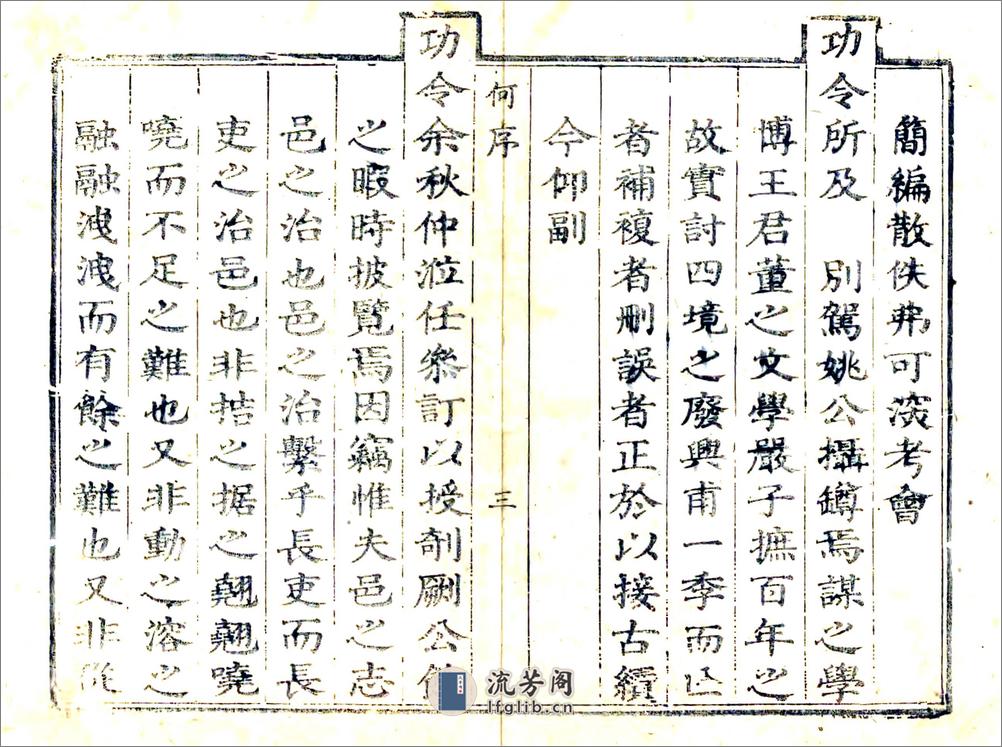 簡編散佚弗可深考會
功令所及　別駕姚公攝鐏焉謀之學
博王君董之文學嚴子摭百年之
故實討四境之廢興甫一季而亾
者補複者刪誤者正於以接古續
今仰副
何序
三
功令余秋仲涖任叅訂以授剞劂公
之暇時披覽焉因竊惟夫邑之志
邑之治也邑之治繫乎長吏而長
吏之治邑也非拮之据之翹翹嘵
嘵而不足之難也又非動之溶之
融融洩洩而有餘之難也又非
流芳阁
lfglib.cn